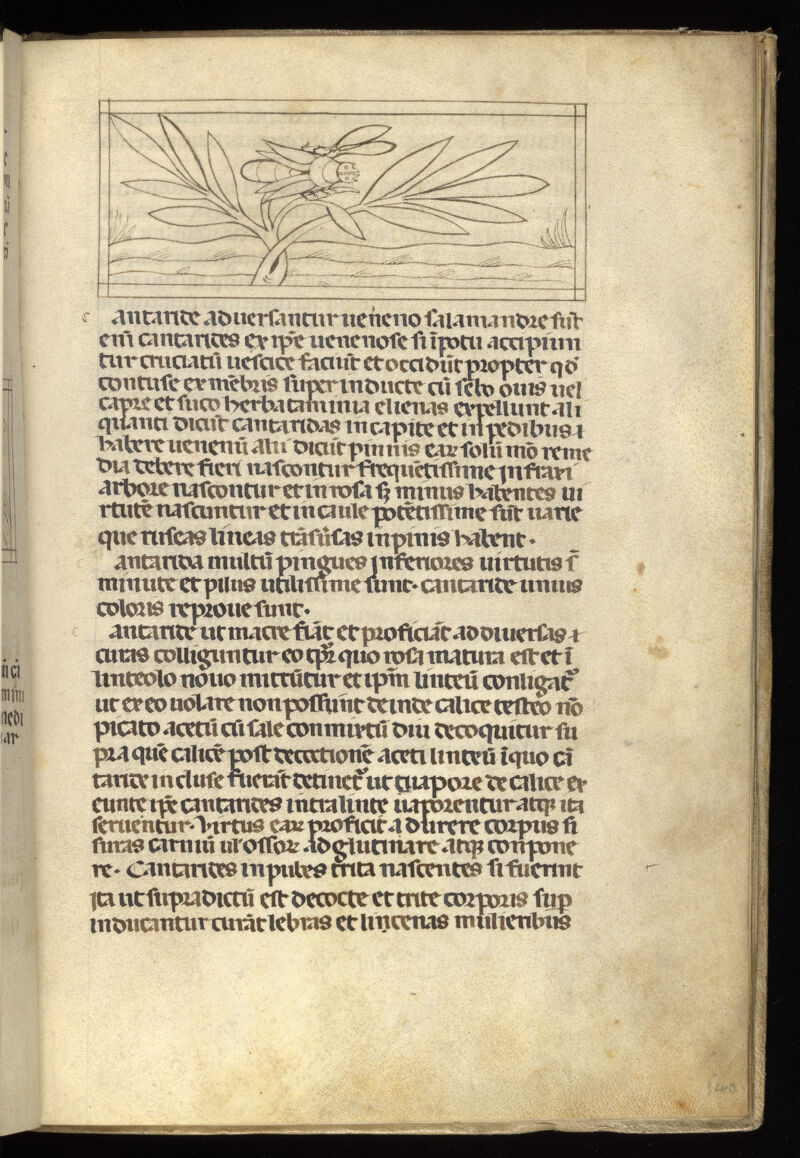 c antaride aduersantur ueneno salamandre sūt
eīī cantarides ex ip̄e uenenose si īpotu accipiun
tur cruciatū uescice faciūt et occidūt propter qd̄
contuse ex mēbris super inducte cū sebo ouis uel
capre et suco herba taminia elienas expellunt ali
quanti dicūt cantaridas in capite et in pedibus ⁊
habere uenenū alii dicūt pinnis eaꝝ solū mō reme
dia debere fieri nascontur frequētissime in fraxi
arbore nascontur et in rosa sꝫ minus habentes ui
rtutē nascuntur et in caule potētissime sūt uarie
que ruseas lineas trāsūsas in pinis habent .
antarida multū pingues inferiores uirtutis s̄
minute et pilus utilissime sunt . cantaride unius
coloris reproue sunt .
c antaride ut macre fiāt et proficiāt ad diuersas ⁊
curas colligūntur eo tp̄r quo rosa matura est et ī
linteolo nouo mittūtur et ipm̄ linteū conligat᷑
ut ex eo uolare non possunt deinde calice testeo nō
picato acetū cū sale conmixtū diu decoquitur su
pra quē calicē post decoctionē aceti linteū īquo cā
taride in cluse fuerāt detinet᷑ ut a uapore de calice ex
eunte ip̄e cantarides intra linte uaporentur atqꝫ ita
seruentur . Virtus eaꝝ proficit adurere corpus fi
suras carniū ul̓ ossoꝝ adglutinare atqꝫ conpone
re . Cantarides in pubes trita nascentes si fuerint
ita ut supradictū est decocte et trite corporis sup̄
inducantur curāt lebras et lincenas mulieribus
140